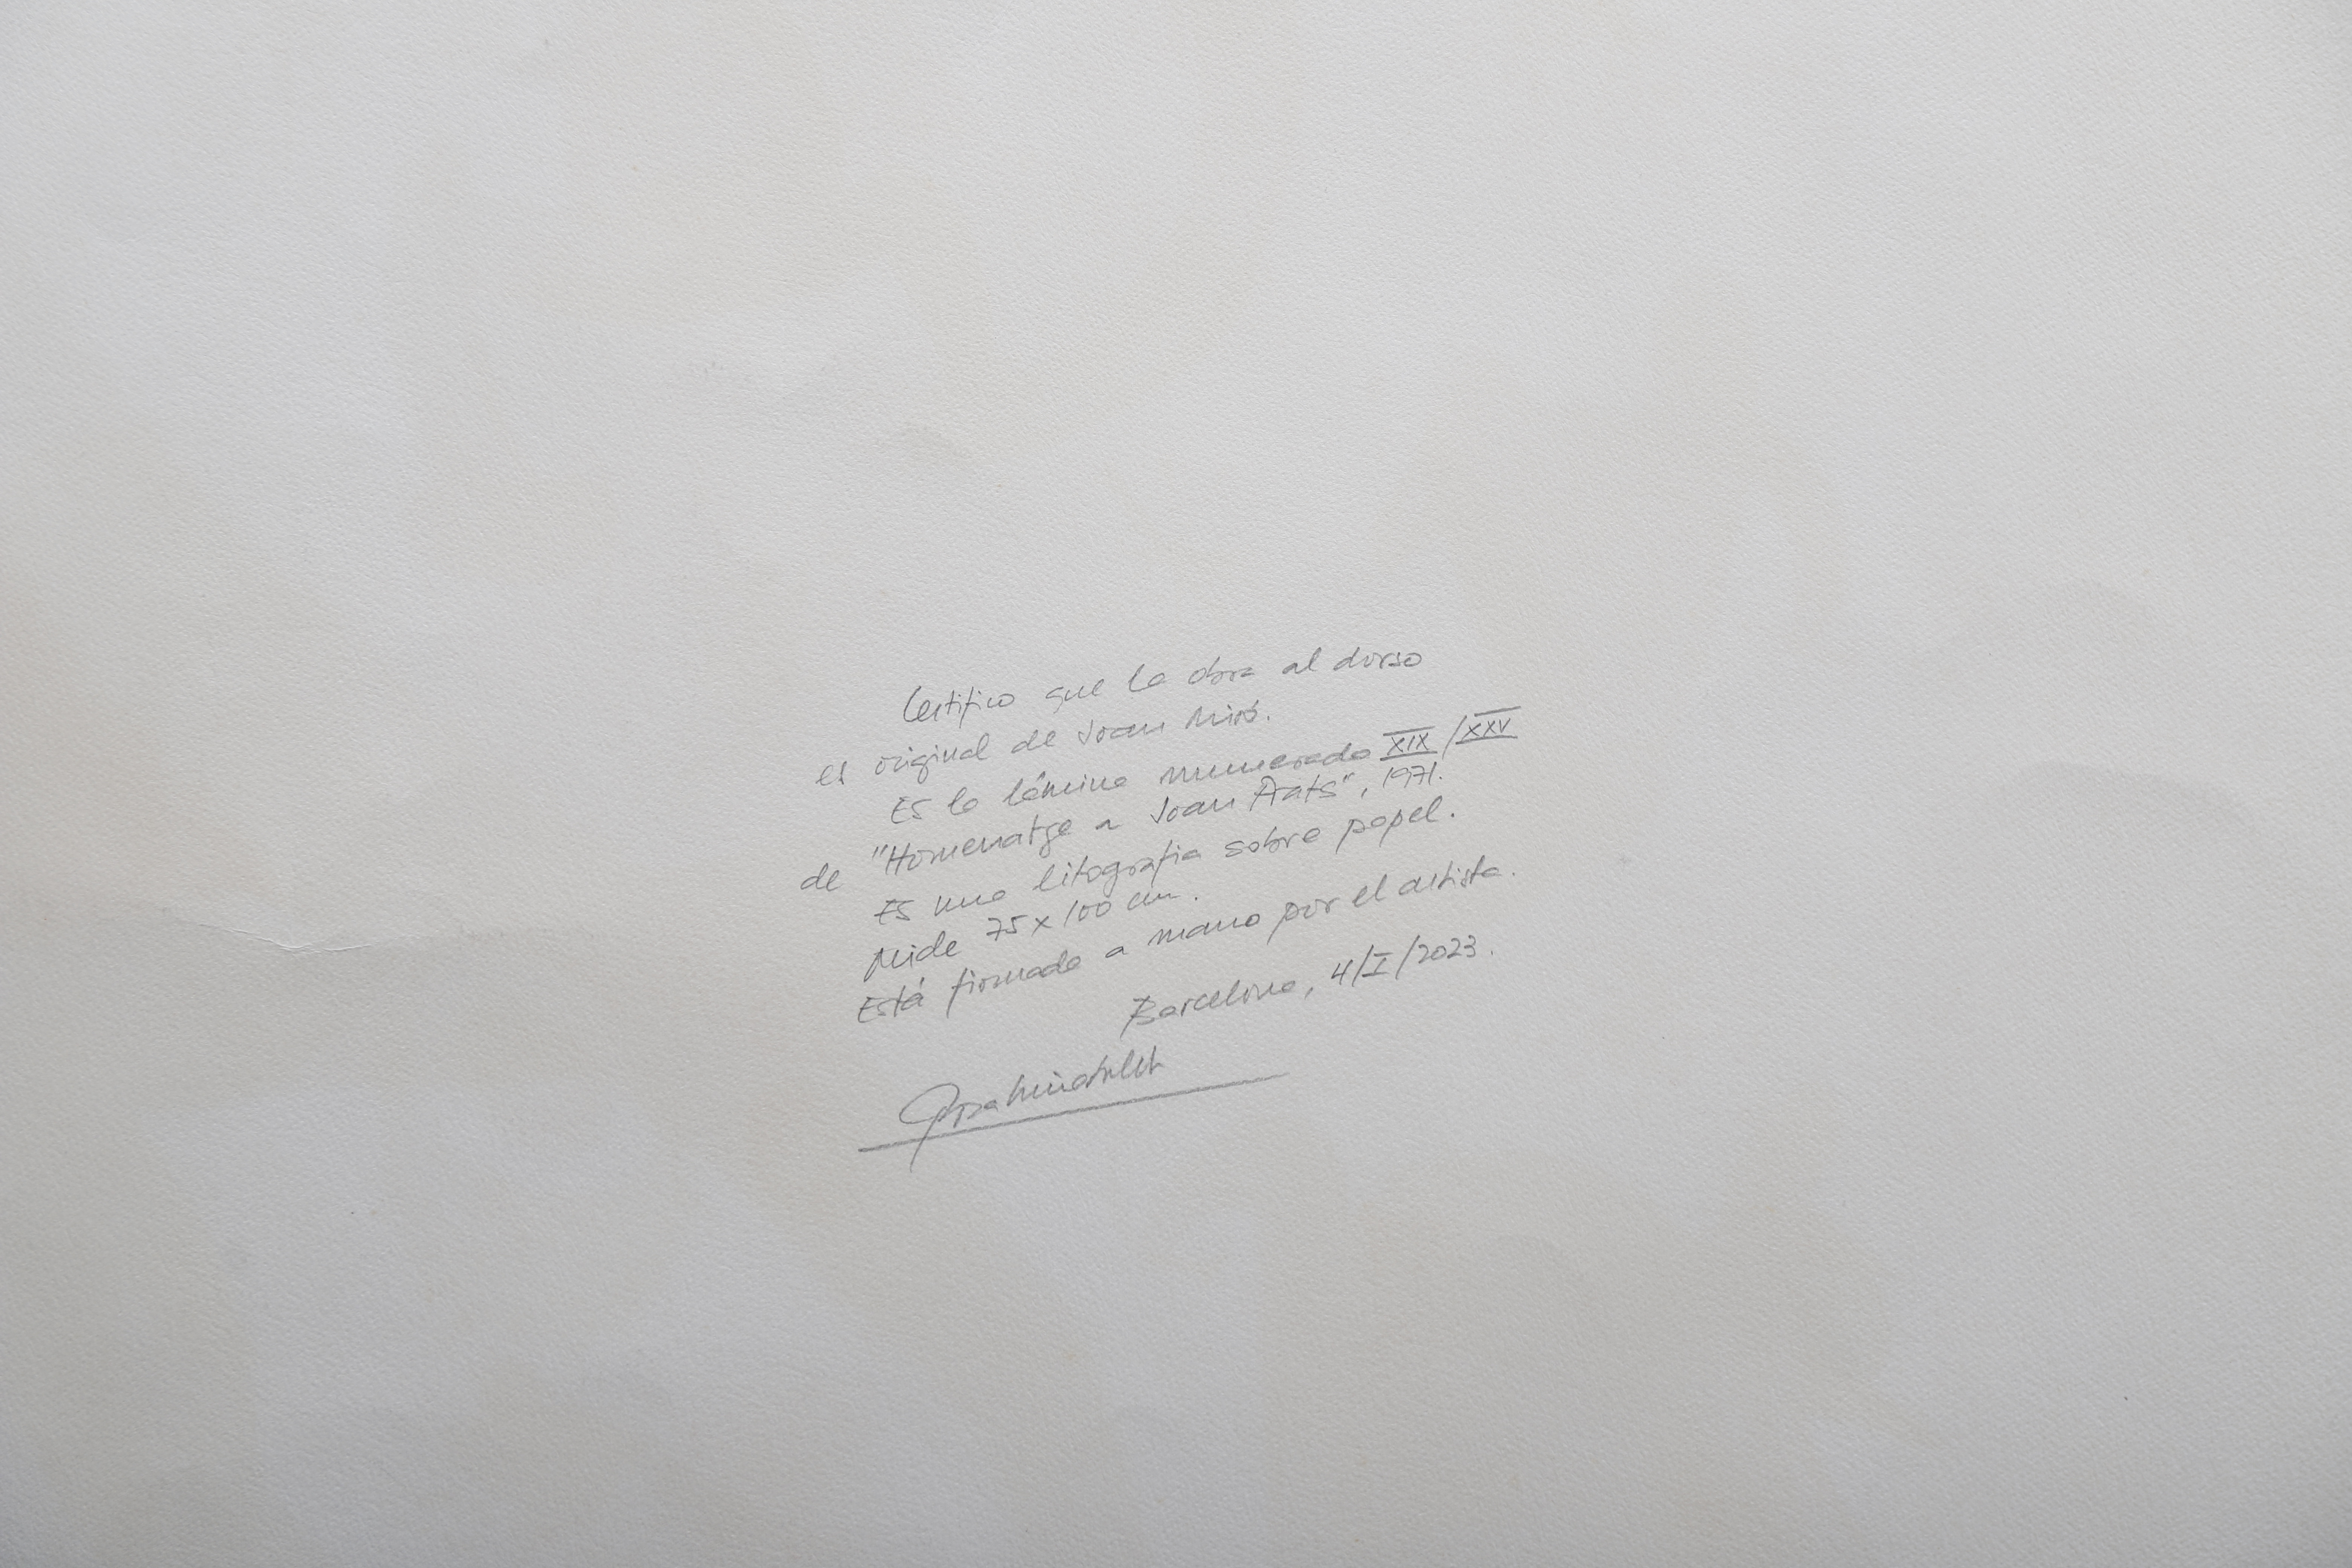 Certifico que la obra al dorso
es original de Joan Miró.
Es la lámina numerada XIX/XXV
de "Homenatge a Joan Prats", 1971.
Es una litografia sobre papel.
Mide 75 x 100 cm.
Está firmada a mano por el artista.
Barcelona, 4/I/2023.